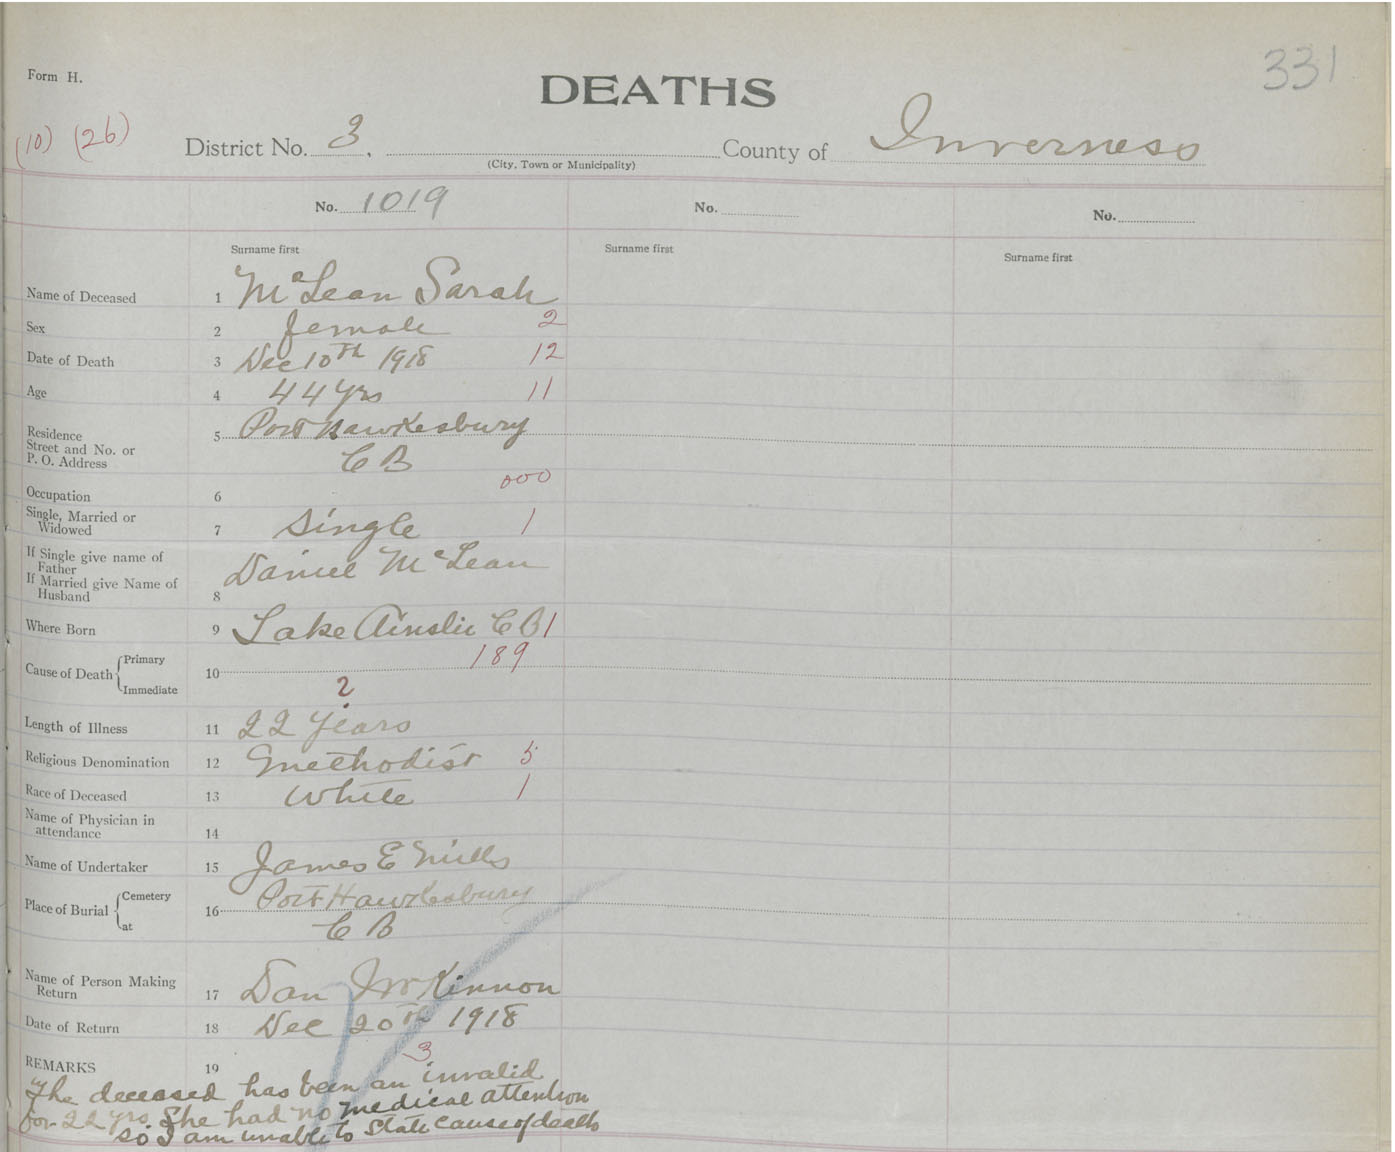 Form H.
DEATHS
331
(10) (26)
District No. 3, County of Inverness
(City, Town or Municipality)
No. 1019 No. No.
Surname first Surname first Surname first
Name of Deceased 1 McLean Sarah
Sex 2 female 2
Date of Death 3 Dec 10th 1918 12
Age 4 44 yrs 11
Residence 5 Port Hawkesbury
Street and No. or
P. O. Address C B
Occupation 6 000
Single, Married or
Widowed 7 Single 1
If Single give name of
Father Daniel McLean
If Married give Name of
Husband 8
Where Born 9 Lake Ainslie C B 1
Cause of Death { Primary 10 189
Immediate 2
Length of Illness 11 22 years
Religious Denomination 12 Methodist 5
Race of Deceased 13 White 1
Name of Physician in
attendance 14
Name of Undertaker 15 James E Mills
Place of Burial { Cemetery 16 Port Hawkesbury
at C B
Name of Person Making
Return 17 Dan McKinnon
Date of Return 18 Dec 20th 1918
REMARKS 19 3
The deceased has been an invalid
for 22 yrs. She had no medical attention
so I am unable to State cause of death